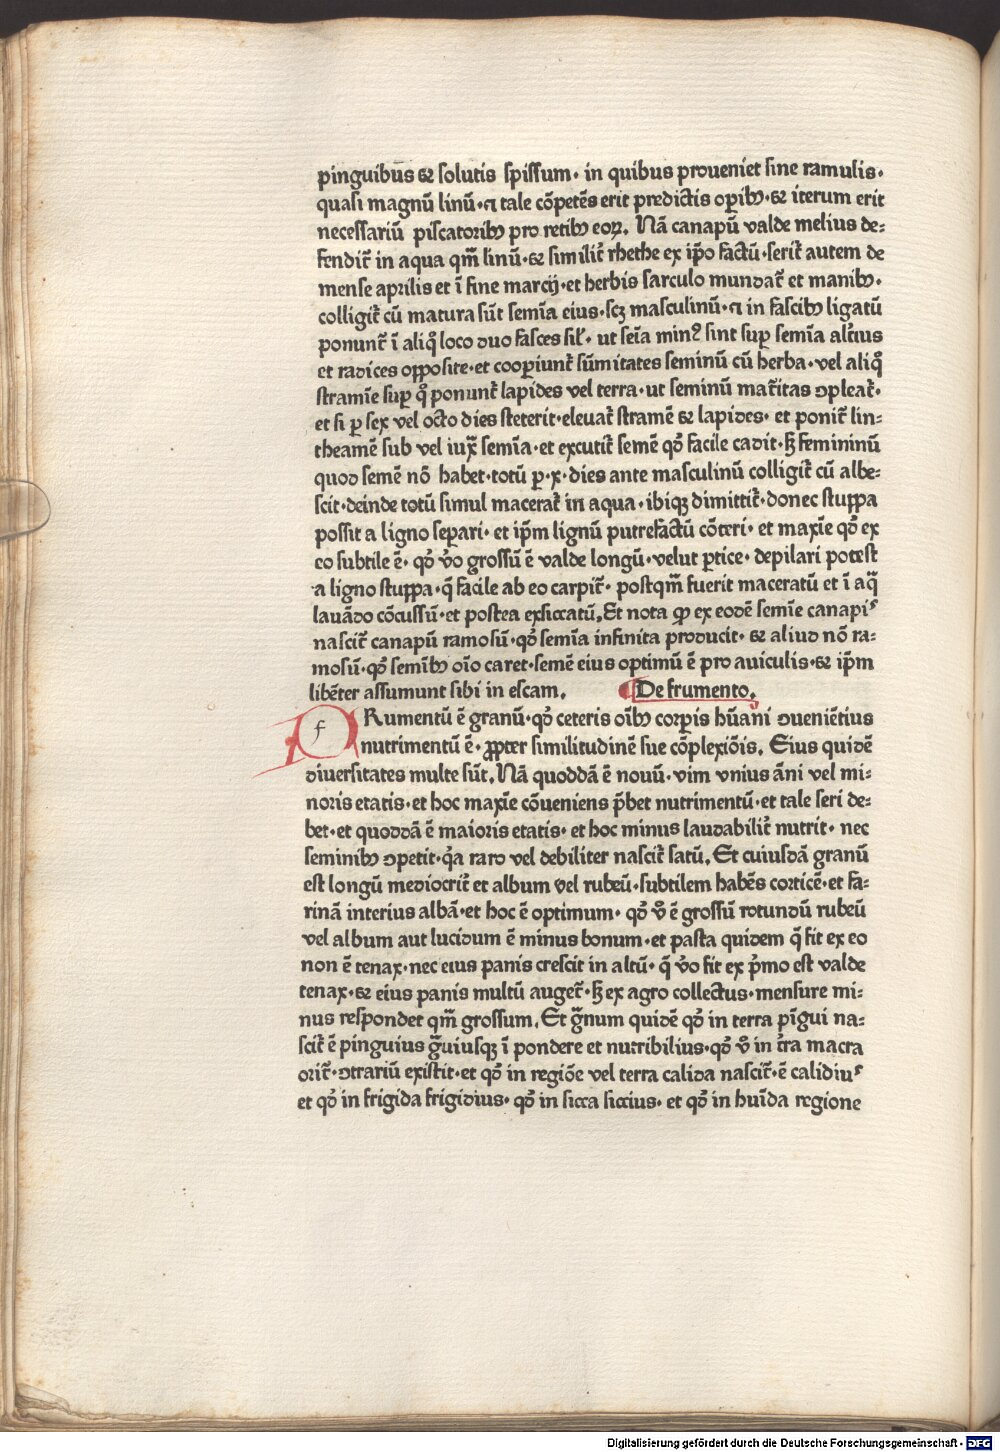 pinguibus & solutis spissum· in quibus proueniet sine ramulis·
quasi magnū linū·⁊ tale cōpetēs erit predictis oꝑibꝰ·& iterum erit
necessariū piscatoribꝰ pro retibꝰ eoꝝ. Nā canapū valde melius de⸗
fendit̄ in aqua qm̄ linū·& similit̄ rhethe ex ip̄o factū·serit̄ autem de
mense aprilis et ī fine marcij·et herbis sarculo mundat̄ et manibꝰ·
colligit̄ cū matura sūt semīa eius·scꝫ masculinū·⁊ in fascibꝰ ligatū
ponunt̄ ī aliq̊ loco duo fasces sil̄· ut seīa minꝰ sint suꝑ semīa alt̄ius
et radices oꝑposite·et cooꝑiunt̄ sūmitates seminū cū herba·vel aliq̊
stramīe suꝑ q̊ ponunt̄ lapides vel terra·ut seminū mat̄itas ꝯpleat̄·
et si ꝑ sex vel octo dies steterit·eleuat̄ stramē & lapides· et ponit̄ lin⸗
theamē sub vel iux̄ semīa·et excutit̄ semē qd̄ facile cadit·sꝫ femininū
quod semē nō habet·totū ꝑ·x·dies ante masculinū colligit̄ cū albe⸗
scit·deinde totū simul macerat̄ in aqua·ibiqꝫ dimittit̄·donec stuppa
possit a ligno seꝑari·et ip̄m lignū putrefactū cōteri·et maxīe qd̄ ex
eo subtile ē· qd̄ v̊o grossū ē valde longū·velut ꝑtice·depilari potest
a ligno stuppa·q̄ facile ab eo carpit̄· postqm̄ fuerit maceratū et ī aq̄
lauādo cōcussū·et postea exsiccatū. Et nota ꝙ ex eodē semīe canapiˢ
nascit̄ canapū ramosū·qd̄ semīa infinita producit· & aliud nō ra⸗
mosū·qd̄ semībꝰ oīo caret·semē eius optimū ē pro auiculis·& ip̄m
libēter assumunt sibi in escam. De frumento.
f Rumentū ē granū·qd̄ ceteris oībꝰ corꝑis hūani ꝯueniētius
nutrimentū ē·ꝓpter similitudinē sue cōplexiōis. Eius quidē
diuersitates multe sūt. Nā quoddā ē nouū·vim vnius āni vel mi⸗
noris etatis·et hoc maxīe cōueniens p̄bet nutrimentū·et tale seri de⸗
bet·et quoddā ē maioris etatis·et hoc minus laudabilit̄ nutrit· nec
seminibꝰ ꝯpetit·q̄a raro vel debiliter nascit̄ satū. Et cuiusdā granū
est longū mediocrit̄ et album vel rubeū·subtilem habēs corticē·et fa⸗
rinā interius albā·et hoc ē optimum· qd̄ v̊ ē grossū rotundū rubeū
vel album aut lucidum ē minus bonum·et pasta quidem q̄ fit ex eo
non ē tenax·nec eius panis crescit in altū·q̄ v̊o fit ex p̄mo est valde
tenax·& eius panis multū auget̄·sꝫ ex agro collectus·mensure mi⸗
nus respondet qm̄ grossum. Et g̊num quidē qd̄ in terra pīgui na⸗
scit̄ ē pinguius g̊uiusqꝫ ī pondere et nutribilius·qd̄ v̊ in t̄ra macra
orit̄·ꝯtrariū existit·et qd̄ in regiōe vel terra calida nascit̄·ē calidiuˢ
et qd̄ in frigida frigidius·qd̄ in sicca siccius·et qd̄ in huīda regione
Digitalisierung gefördert durch die Deutsche Forschungsgemeinschaft - DFG